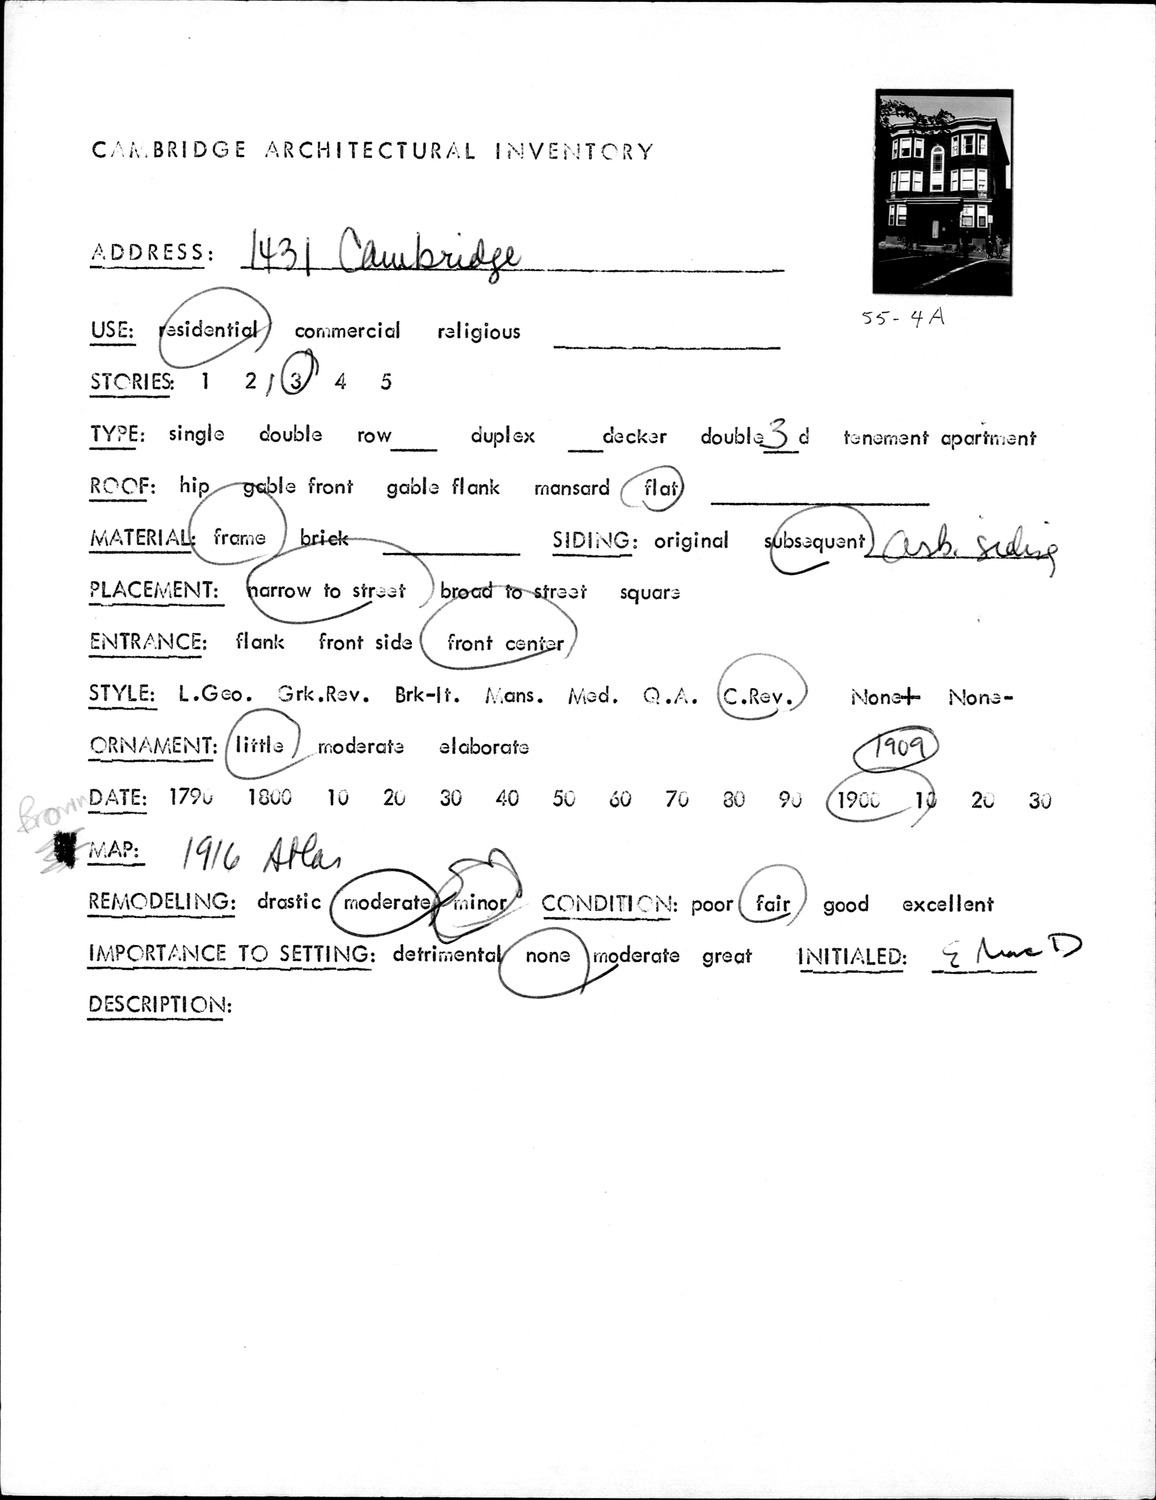 CAMBRIDGE ARCHITECTURAL INVENTORY
ADDRESS: 1431 Cambridge
55-4A
USE: residential commercial religious
STORIES: 1 2 3 4 5
TYPE: single double row___ duplex ___decker double 3 d tenement apartment
ROOF: hip gable front gable flank mansard flat
MATERIAL: frame brick SIDING: original subsequent Asb. siding
PLACEMENT: narrow to street broad to street square
ENTRANCE: flank front side front center
STYLE: L.Geo. Grk.Rev. Brk-It. Mans. Med. Q.A. C.Rev. None+ None-
ORNAMENT: little moderate elaborate 1909
DATE: 1790 1800 10 20 30 40 50 60 70 80 90 1900 10 20 30
MAP: 1916 Atlas
REMODELING: drastic moderate minor CONDITION: poor fair good excellent
IMPORTANCE TO SETTING: detrimental none moderate great INITIALED: E MacD
DESCRIPTION: